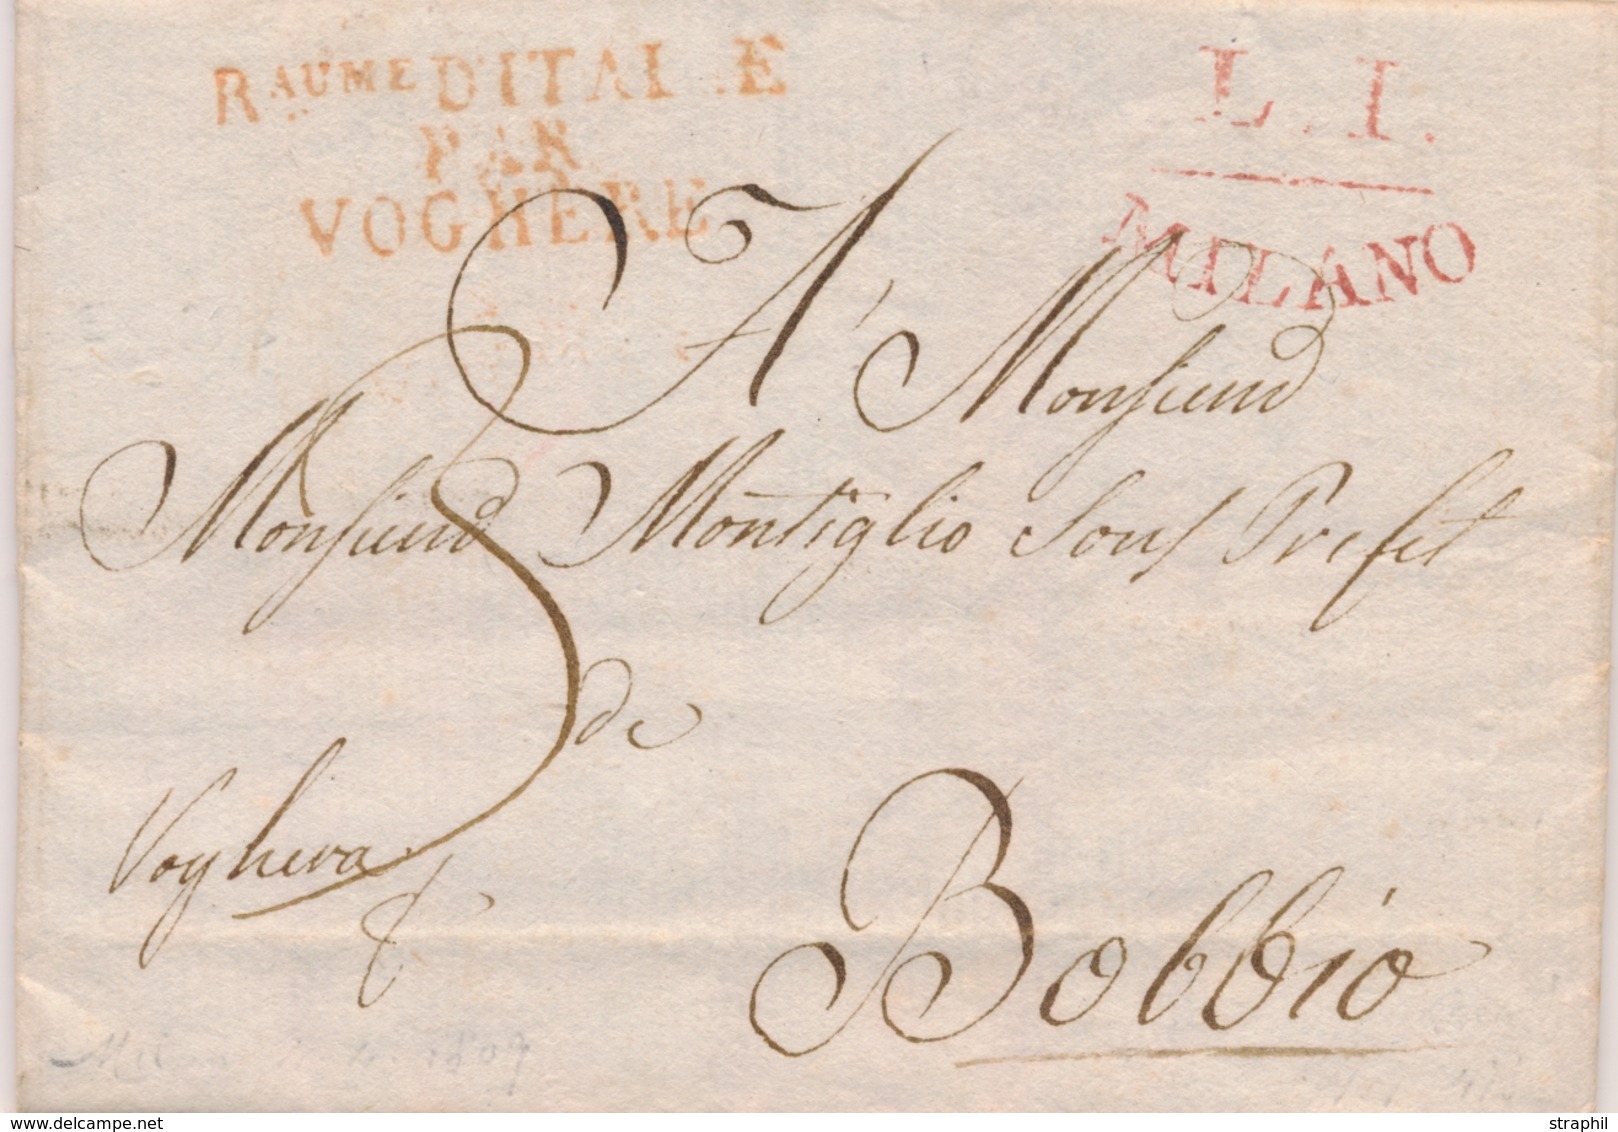 RAUME D'ITALIE
PAR
VOGHERE
L. I.
MILANO
A Monsieur
Monsieur Montiglio Sous Prefet
de
Voghera
Bobbio
1809
delcampe.net
straphil